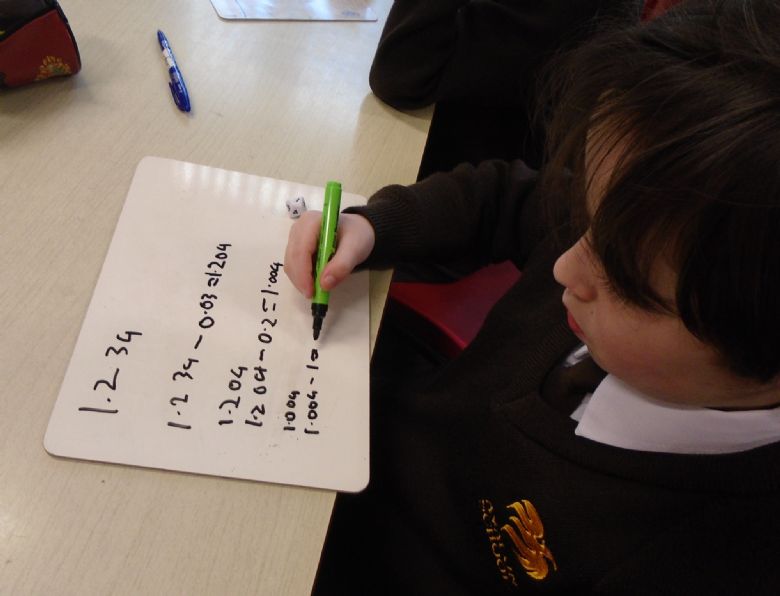 1.234
1.234 - 0.03 = 1.204
1.204
1.204 - 0.2 = 1.004
1.004
1.004 - 1 =
SCHOOL